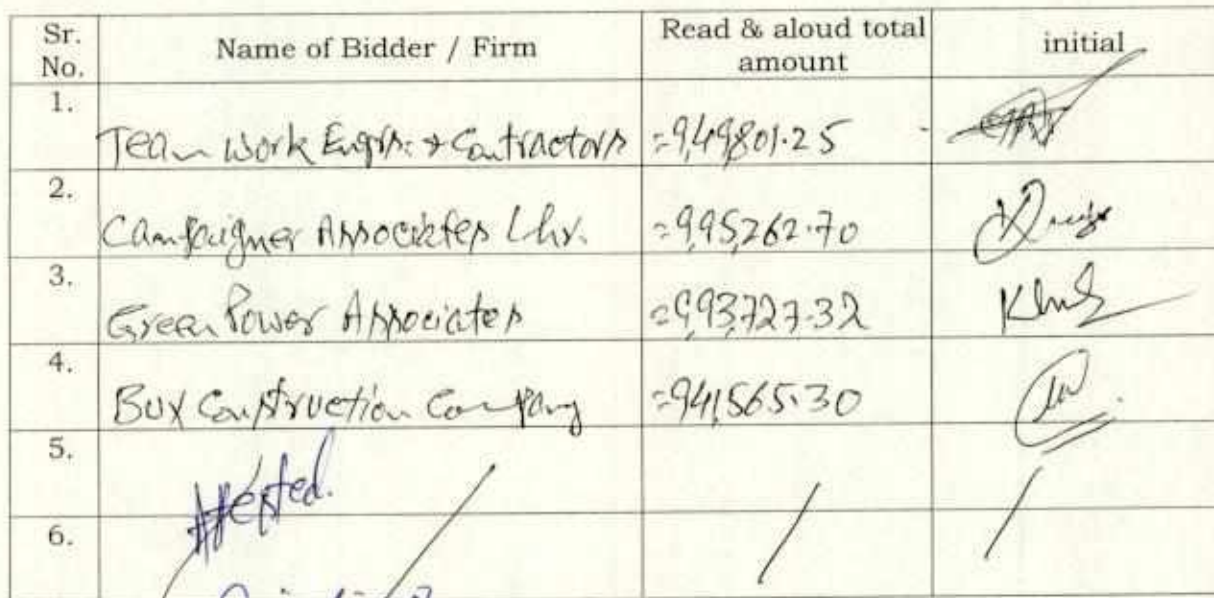 Sr. No. Name of Bidder / Firm Read & aloud total amount initial
1. Team Work Engrs: & Contractors =9,49,801.25
2. Campaigner Associates Lhr. =9,95,262.70
3. Green Power Associates =9,93,727.32
4. Bux Construction Company =941,565.30
5.
Attested.
6.